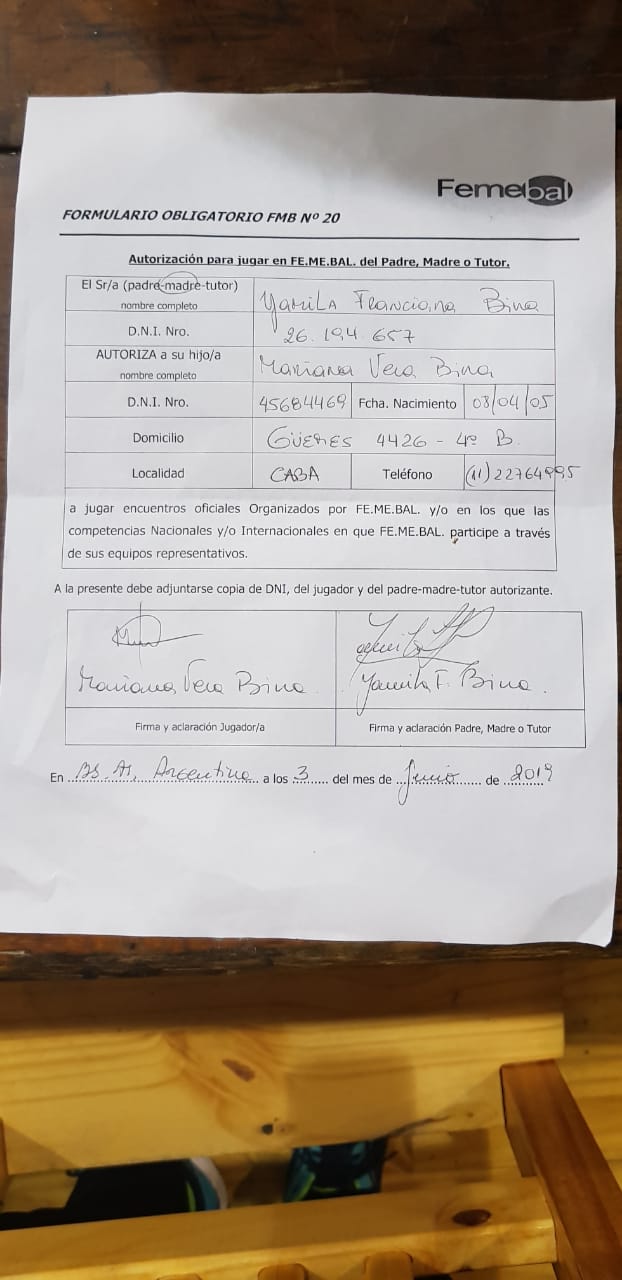 Femebal
FORMULARIO OBLIGATORIO FMB Nº 20
Autorización para jugar en FE.ME.BAL. del Padre, Madre o Tutor.
El Sr/a (padre-madre-tutor)
nombre completo
Yamila Franciana Bina
D.N.I. Nro.
26.194.657
AUTORIZA a su hijo/a
nombre completo
Mariana Vera Bina
D.N.I. Nro. 45684469 Fcha. Nacimiento 03/04/05
Domicilio GÜEMES 4426 - 4º B.
Localidad CABA Teléfono (11) 22764995
a jugar encuentros oficiales Organizados por FE.ME.BAL. y/o en los que las
competencias Nacionales y/o Internacionales en que FE.ME.BAL. participe a través
de sus equipos representativos.
A la presente debe adjuntarse copia de DNI, del jugador y del padre-madre-tutor autorizante.
Mariana Vera Bina
Yamila F. Bina.
Firma y aclaración Jugador/a
Firma y aclaración Padre, Madre o Tutor
En Bs. As, Argentina a los 3 del mes de Junio de 2019